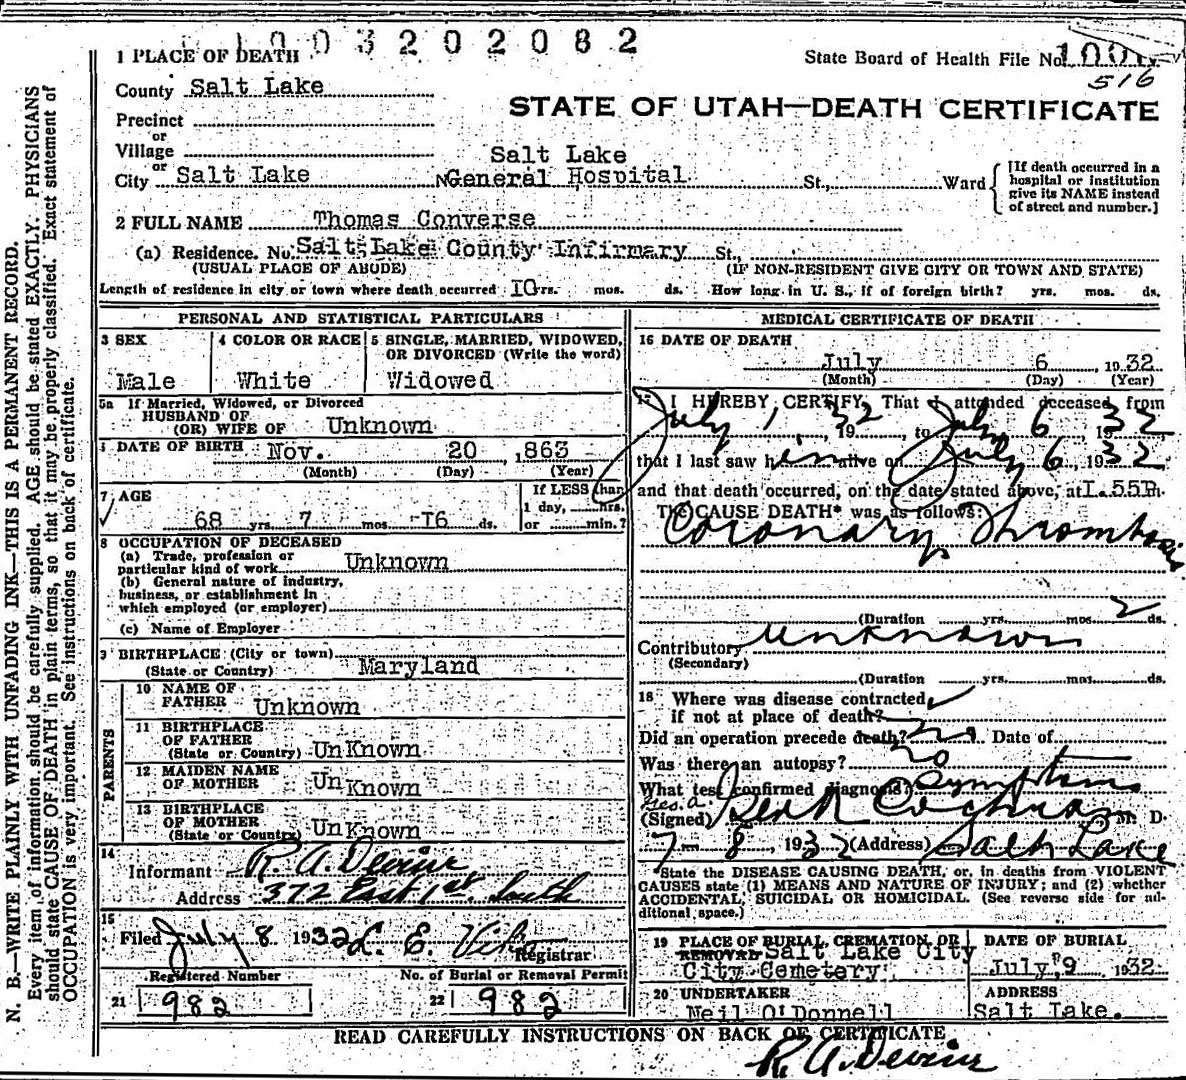 1003202082
1 PLACE OF DEATH
State Board of Health File No.
516
County Salt Lake
STATE OF UTAH—DEATH CERTIFICATE
Precinct
or
Village
Salt Lake
or
City Salt Lake No. General Hospital St., Ward
[If death occurred in a
hospital or institution
give its NAME instead
of street and number.]
2 FULL NAME Thomas Converse
(a) Residence. No. Salt Lake County Infirmary St.,
(USUAL PLACE OF ABODE) (IF NON-RESIDENT GIVE CITY OR TOWN AND STATE)
Length of residence in city or town where death occurred 10 yrs. mos. ds. How long in U. S., if of foreign birth? yrs. mos. ds.
PERSONAL AND STATISTICAL PARTICULARS
3 SEX
Male
4 COLOR OR RACE
White
5 SINGLE, MARRIED, WIDOWED,
OR DIVORCED (Write the word)
Widowed
5a If Married, Widowed, or Divorced
HUSBAND OF
(OR) WIFE OF Unknown
DATE OF BIRTH Nov. 20 , 863
(Month) (Day) (Year)
7 AGE
68 yrs. 7 mos. 16 ds.
If LESS than
1 day, hrs.
or min.?
8 OCCUPATION OF DECEASED
(a) Trade, profession or
particular kind of work Unknown
(b) General nature of industry,
business, or establishment in
which employed (or employer)
(c) Name of Employer
9 BIRTHPLACE (City or town)
(State or Country) Maryland
PARENTS
10 NAME OF
FATHER Unknown
11 BIRTHPLACE
OF FATHER
(State or Country) UnKnown
12 MAIDEN NAME
OF MOTHER UnKnown
13 BIRTHPLACE
OF MOTHER
(State or Country) UnKnown
14
Informant R. A. Devine
Address 372 East 1st. South
15
Filed July 8 1932 L. E.
Registrar
Registered Number
21 982
No. of Burial or Removal Permit
22 982
MEDICAL CERTIFICATE OF DEATH
16 DATE OF DEATH
July 6 , 1932
(Month) (Day) (Year)
17 I HEREBY CERTIFY, That I attended deceased from
July 1, 1932, to July 6, 1932
that I last saw him alive on July 6, 1932
and that death occurred, on the date stated above, at 1.55P m.
The CAUSE DEATH* was as follows:
Coronary Thrombosis
(Duration yrs. mos 2 ds.
Contributory unknown
(Secondary)
(Duration yrs. mos. ds.
18 Where was disease contracted
if not at place of death?
Did an operation precede death? no Date of
Was there an autopsy? no
What test confirmed diagnosis? Symptoms
Geo. A.
(Signed) Cochran M. D.
7 - 8, 1932 (Address) Salt Lake
*State the DISEASE CAUSING DEATH, or, in deaths from VIOLENT
CAUSES state (1) MEANS AND NATURE OF INJURY; and (2) whether
ACCIDENTAL, SUICIDAL OR HOMICIDAL. (See reverse side for ad-
ditional space.)
19 PLACE OF BURIAL, CREMATION, OR
REMOVAL Salt Lake City
City Cemetery
DATE OF BURIAL
July, 9 1932
20 UNDERTAKER
Neil O'Donnell
ADDRESS
Salt Lake.
READ CAREFULLY INSTRUCTIONS ON BACK OF CERTIFICATE
R. A. Devine
N. B.—WRITE PLAINLY WITH UNFADING INK—THIS IS A PERMANENT RECORD.
Every item of information should be carefully supplied. AGE should be stated EXACTLY. PHYSICIANS
should state CAUSE OF DEATH in plain terms, so that it may be properly classified. Exact statement of
OCCUPATION is very important. See instructions on back of certificate.